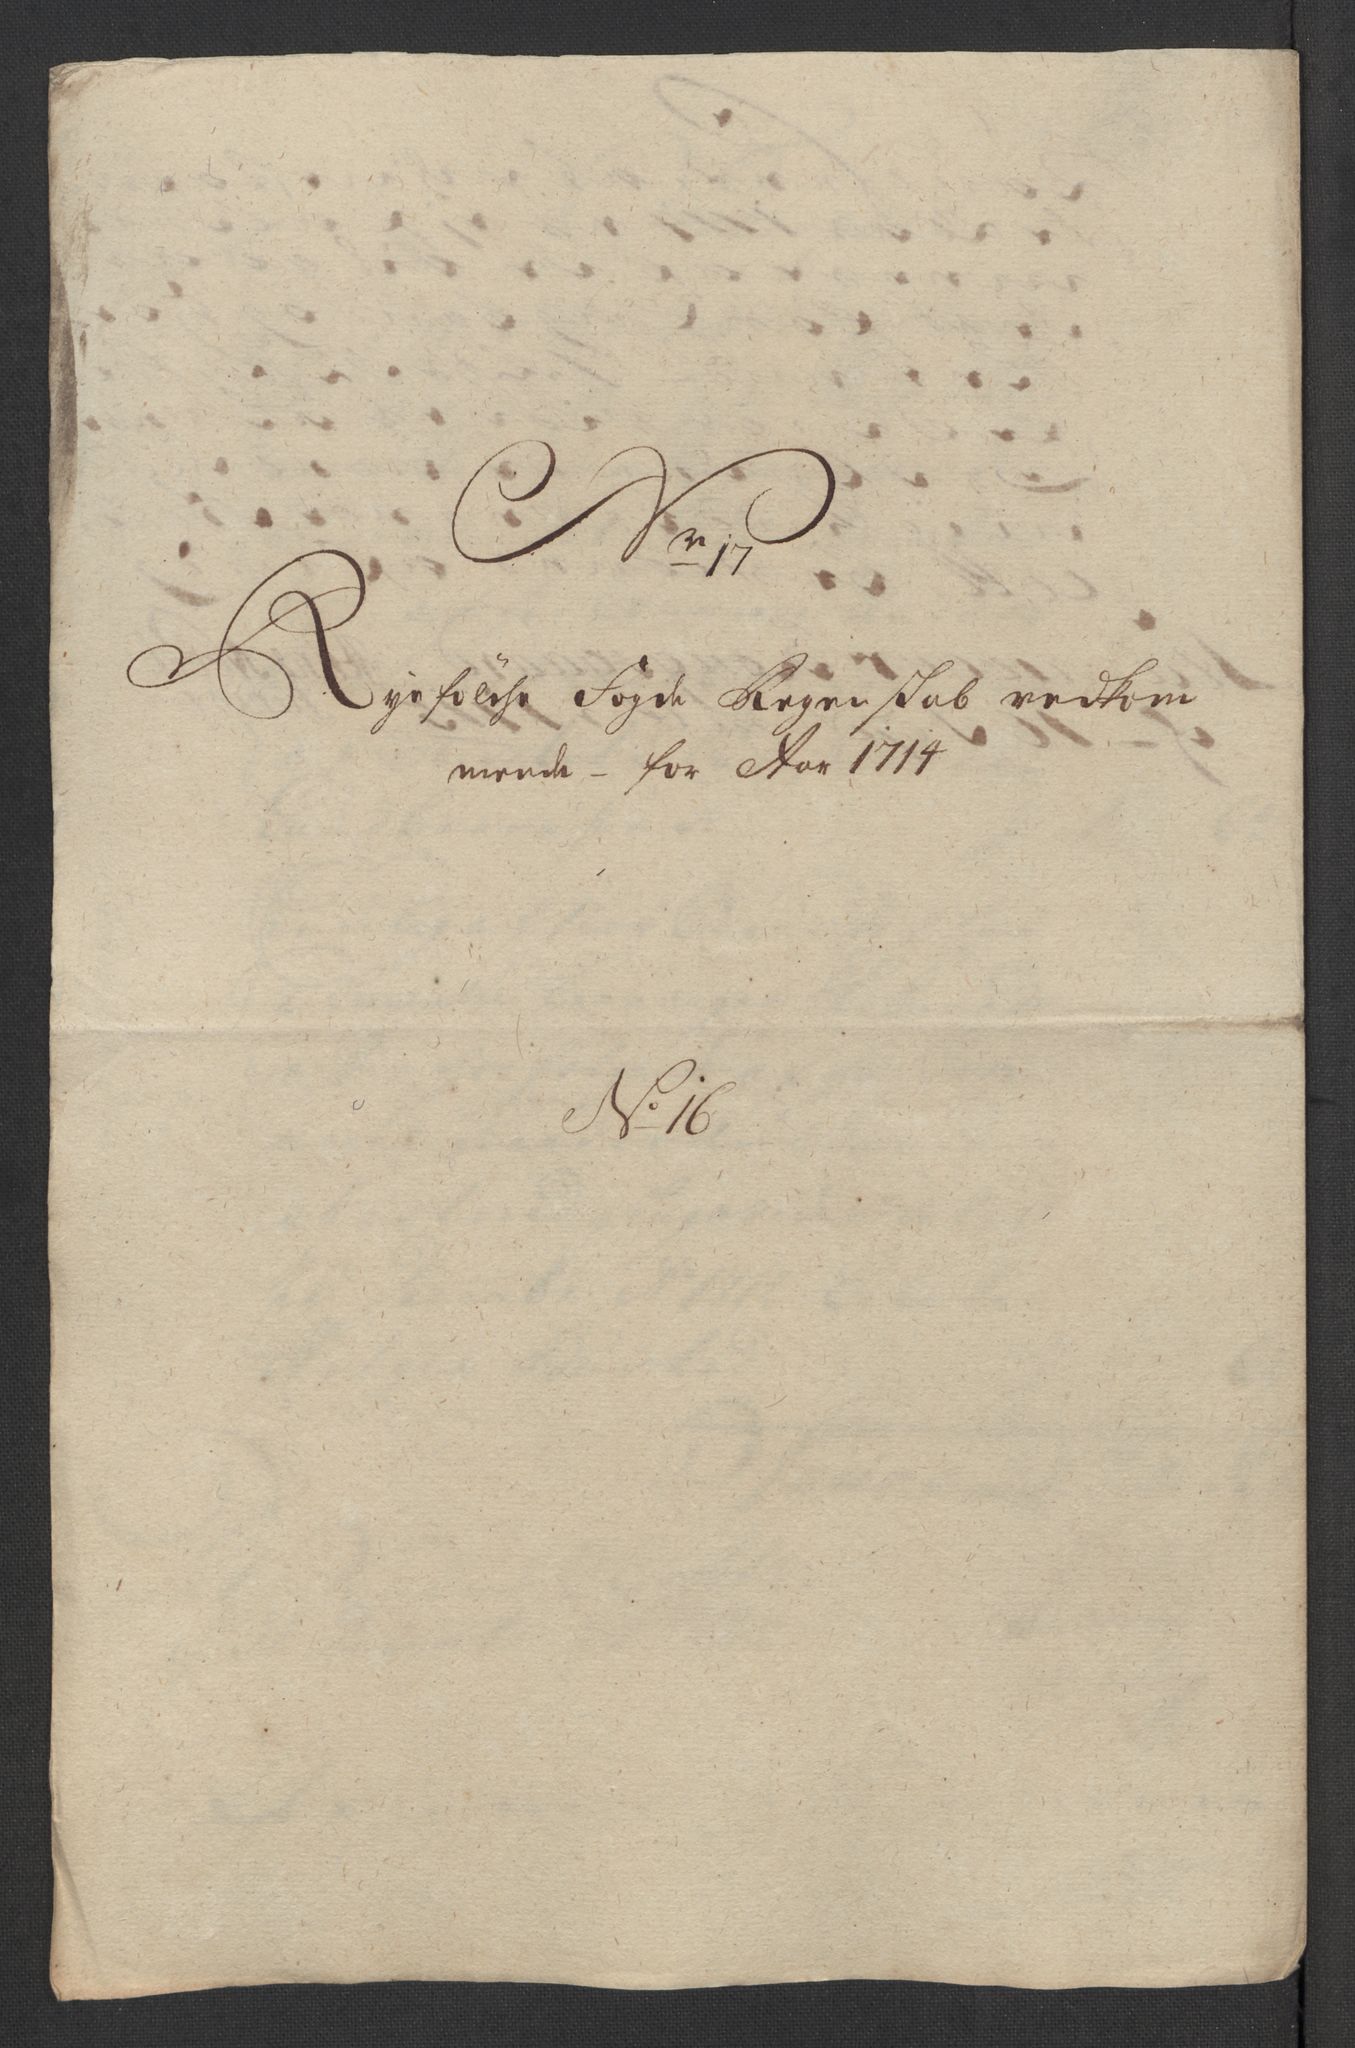 Nr 17
Ryefölche Fogde Regenskab vedkom
mende - for Aar 1714
No 16